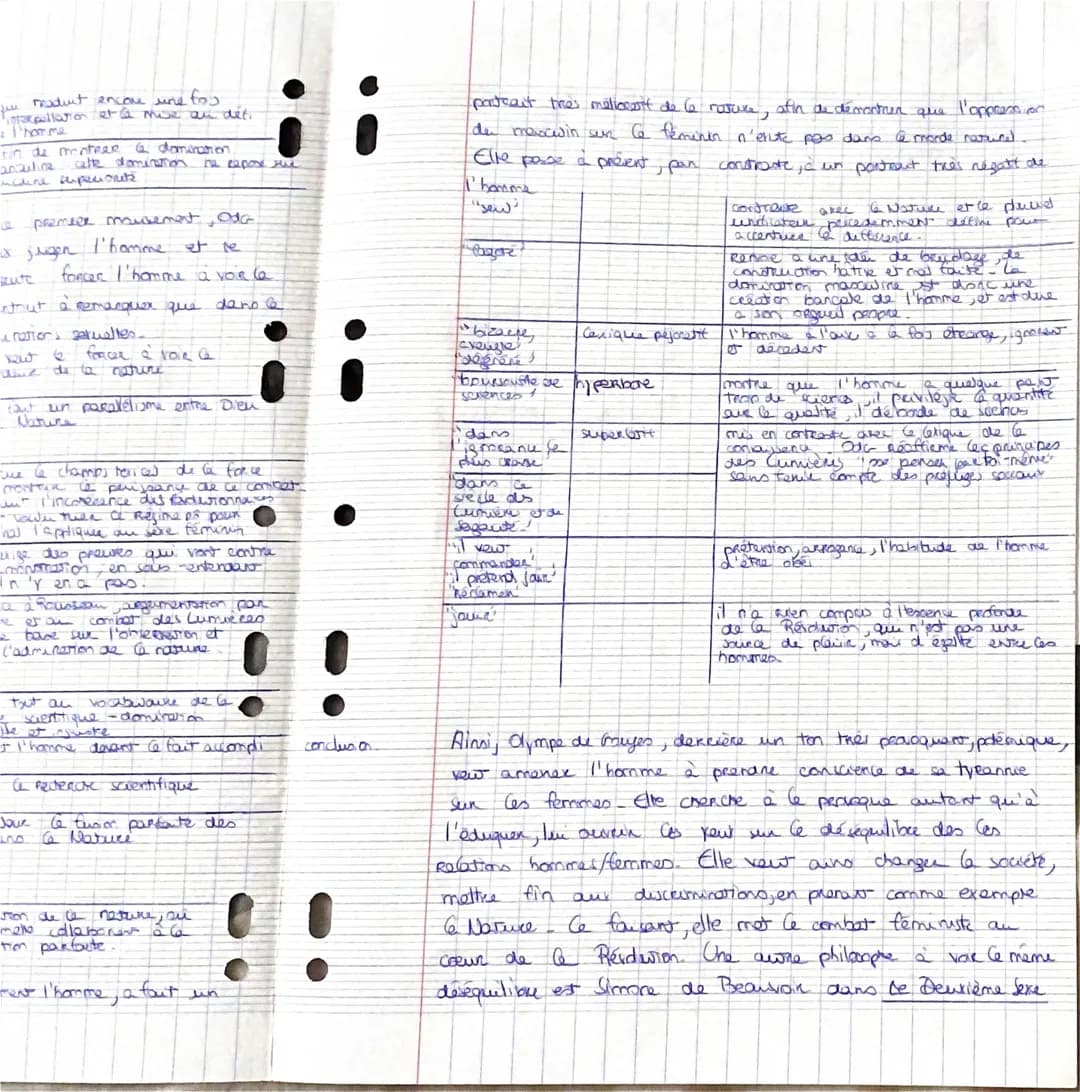 qui traduit encore une fois
l'interpellation et la mise au défi
l'homme
fin de montrer la domination
masculine cette domination ne repose sur
aucune supériorité
ce premier mouvement, OdG
à juger l'homme et se
veute forcer l'homme à voir la
à remarquer que dans la
sexuelles.
veut le forcer à voir la
de la nature
fait un parallélisme entre Dieu
Nature
que le champs lexical de la force
montrer le de ce combat
l'incohérence des Révolutionnaires
voulu tuer le Régime pour
l'applique au sexe féminin
exige des preuves qui vont contre
, en sous-entendant
n'y en a pas.
à Rousseau, argumentation par
et au combat des Lumières
base sur l'observation et
l'admiration de la nature.
tout au vocabulaire de la
scientifique - domination
et injuste
l'homme devant le fait accompli
la recherche scientifique
pour la fusion parfaite des
dans la Nature
de la nature, où
collaborent à la
parfaite.
l'homme, a fait un
portrait très mélioratif de la nature, afin de démontrer que l'oppression
du masculin sur le féminin n'existe pas dans le monde naturel.
Elle passe à présent, par contraste, à un portrait très négatif de
l'homme
"seul" contraste avec la Nature et le pluriel
précédemment défini pour
accentuer la différence.
"fagoté" Renvoie à une idée de bricolage, de
construction hâtive et mal faite - la
domination masculine est donc une
création bancale de l'homme, et est due
à son orgueil propre.
"bizarre, Lexique péjoratif l'homme à l'aux a la fois étrange, ignorant
aveugle, et décadent
dégénéré"
"boursouflé de hyperbole montre que l'homme a quelque part
sciences" trop de sciences, il privilégie la quantité
que la qualité, il déborde de sciences
"dans superlatif mis en contraste avec le lexique de la
l'ignorance la . OdG réaffirme les principes
plus crasse" des Lumières "se penser par toi-même"
"dans ce sans tenir compte des préjugés sociaux
siècle des
Lumières et de
sagacité"
"il veut prétention, arrogance, l'habitude de l'homme
commander" d'être obéi
"il prétend jouir"
"réclamer"
"jouir" il n'a rien compris à l'essence profonde
de la Révolution, qui n'est pas une
source de plaisir, mais d'égalité entre les
hommes.
conclusion Ainsi, Olympe de Gouges, derrière un ton très provoquant, polémique,
veut amener l'homme à prendre conscience de sa tyrannie
sur les femmes - Elle cherche à le provoque autant qu'à
l'éduquer, lui ouvrir les yeux sur le déséquilibre des les
Relations hommes/femmes. Elle veut ainsi changer la société,
mettre fin aux discriminations, en prenant comme exemple
la Nature - Ce faisant, elle met le combat féministe au
coeur de la Révolution. Une autre philosophe à voir le même
déséquilibre est Simone de Beauvoir dans Le Deuxième Sexe